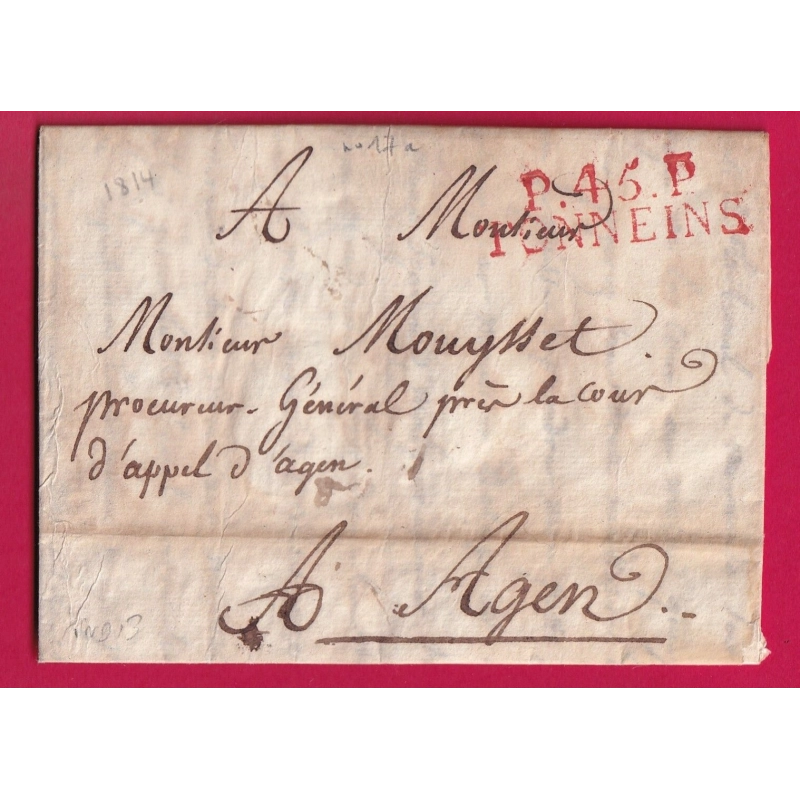 1814
P.45.P
TONNEINS
A Monsieur
Monsieur Mouysset.
procureur. Général près la cour
d'appel d'agen.
A Agen..